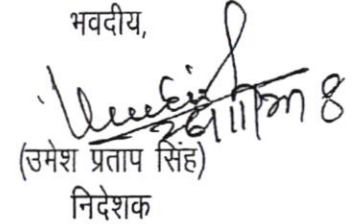 भवदीय,
(उमेश प्रताप सिंह)
निदेशक